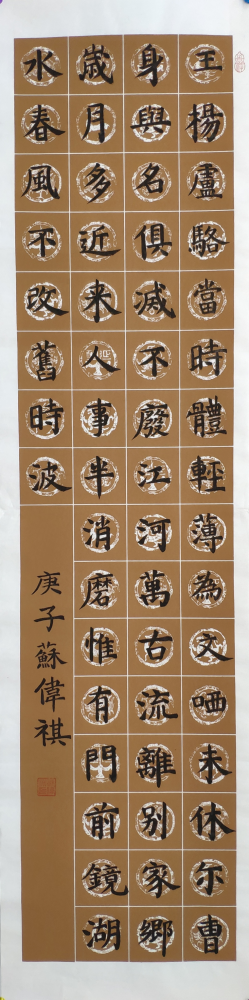 王楊盧駱當時體輕薄為文哂未休尔曹
身與名俱滅不廢江河萬古流離別家鄉
歳月多近来人事半消磨惟有門前鏡湖
水春風不改舊時波
庚子蘇偉祺